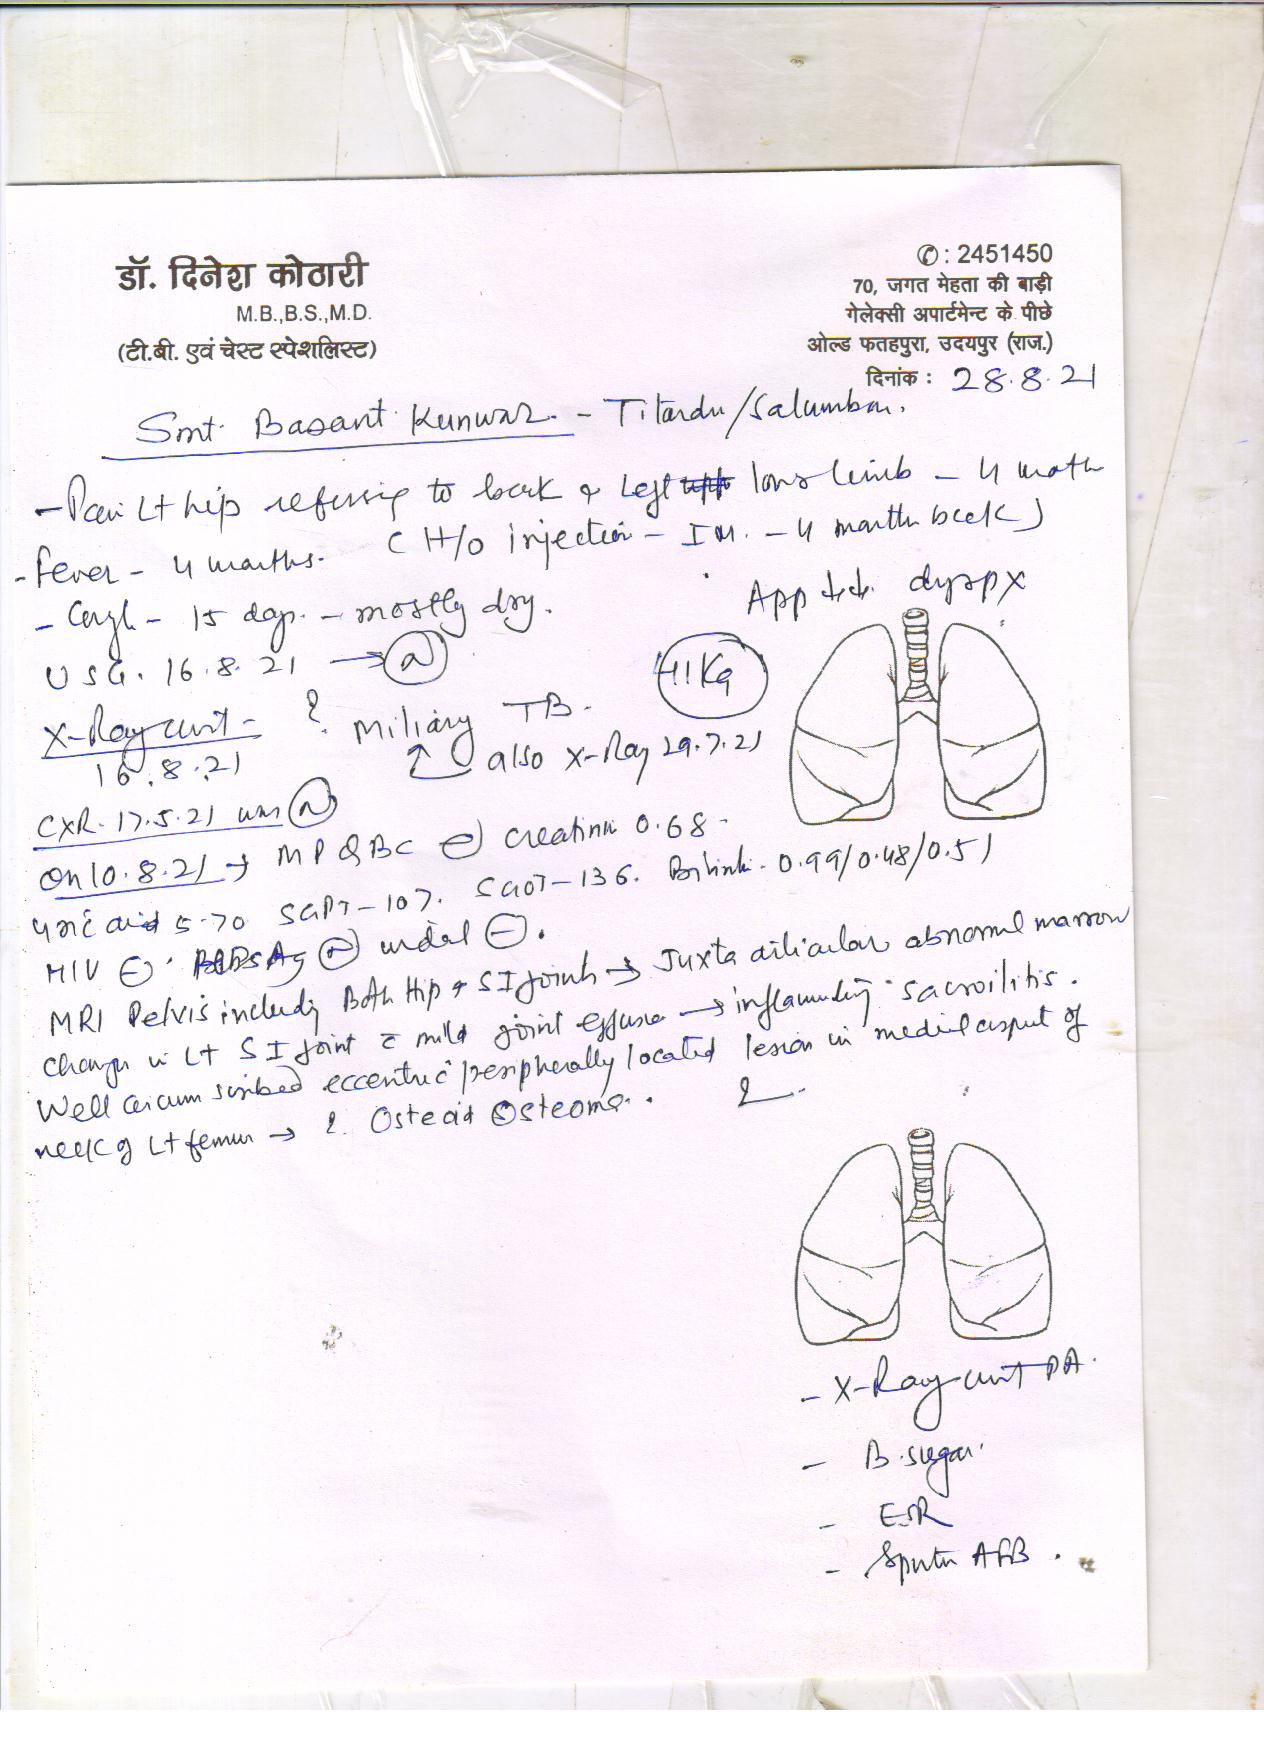 डॉ. दिनेश कोठारी
M.B.,B.S.,M.D.
(टी.बी. एवं चेस्ट स्पेशलिस्ट)
✆ : 2451450
70, जगत मेहता की बाड़ी
गेलेक्सी अपार्टमेन्ट के पीछे
ओल्ड फतहपुरा, उदयपुर (राज.)
दिनांक : 28.8.21
Smt. Basant Kunwar. - /Salumbar.
- Pain Lt hip to back & Left limb - 4 month
- Fever - 4 months. (H/o injection - IM. - 4 month back)
- Cough - 15 days. - mostly dry.
App
USG. 16.8.21 → (N)
41 Kg
X-Ray chest - ? Miliary TB.
16.8.21 also X-Ray 29.7.21
CXR. 17.5.21 was (N)
On 10.8.21 → MP QBC ⊖ creatinin 0.68
Uric acid 5.70 SGPT - 107. SGOT - 136. Bilirubin - 0.99/0.48/0.51
HIV ⊖ (N) widal ⊖.
MRI Pelvis including Both Hip & SI joints → Juxta articular abnormal marrow
changes in Lt SI joint c̄ mild joint effusion → inflammatory sacroilitis.
Well circumscribed eccentric/peripherally located lesion in medial aspect of
neck of Lt femur → ? Osteoid Osteoma.
- X-Ray chest PA.
- B. sugar.
- ESR
- Sputum AFB.